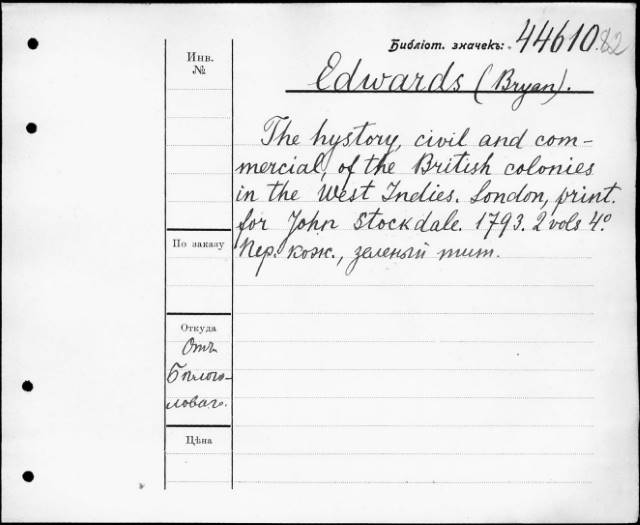 Библіот. значекъ: 44610.82
Инв.
№
Edwards (Bryan).
The hystory, civil and com-
mercial, of the British colonies
in the West Indies. London, print.
for John Stockdale. 1793. 2 vols 4º
Пер. кож., зеленый тит.
По заказу
Откуда
Отъ
Бѣлого-
ловаго.
Цѣна